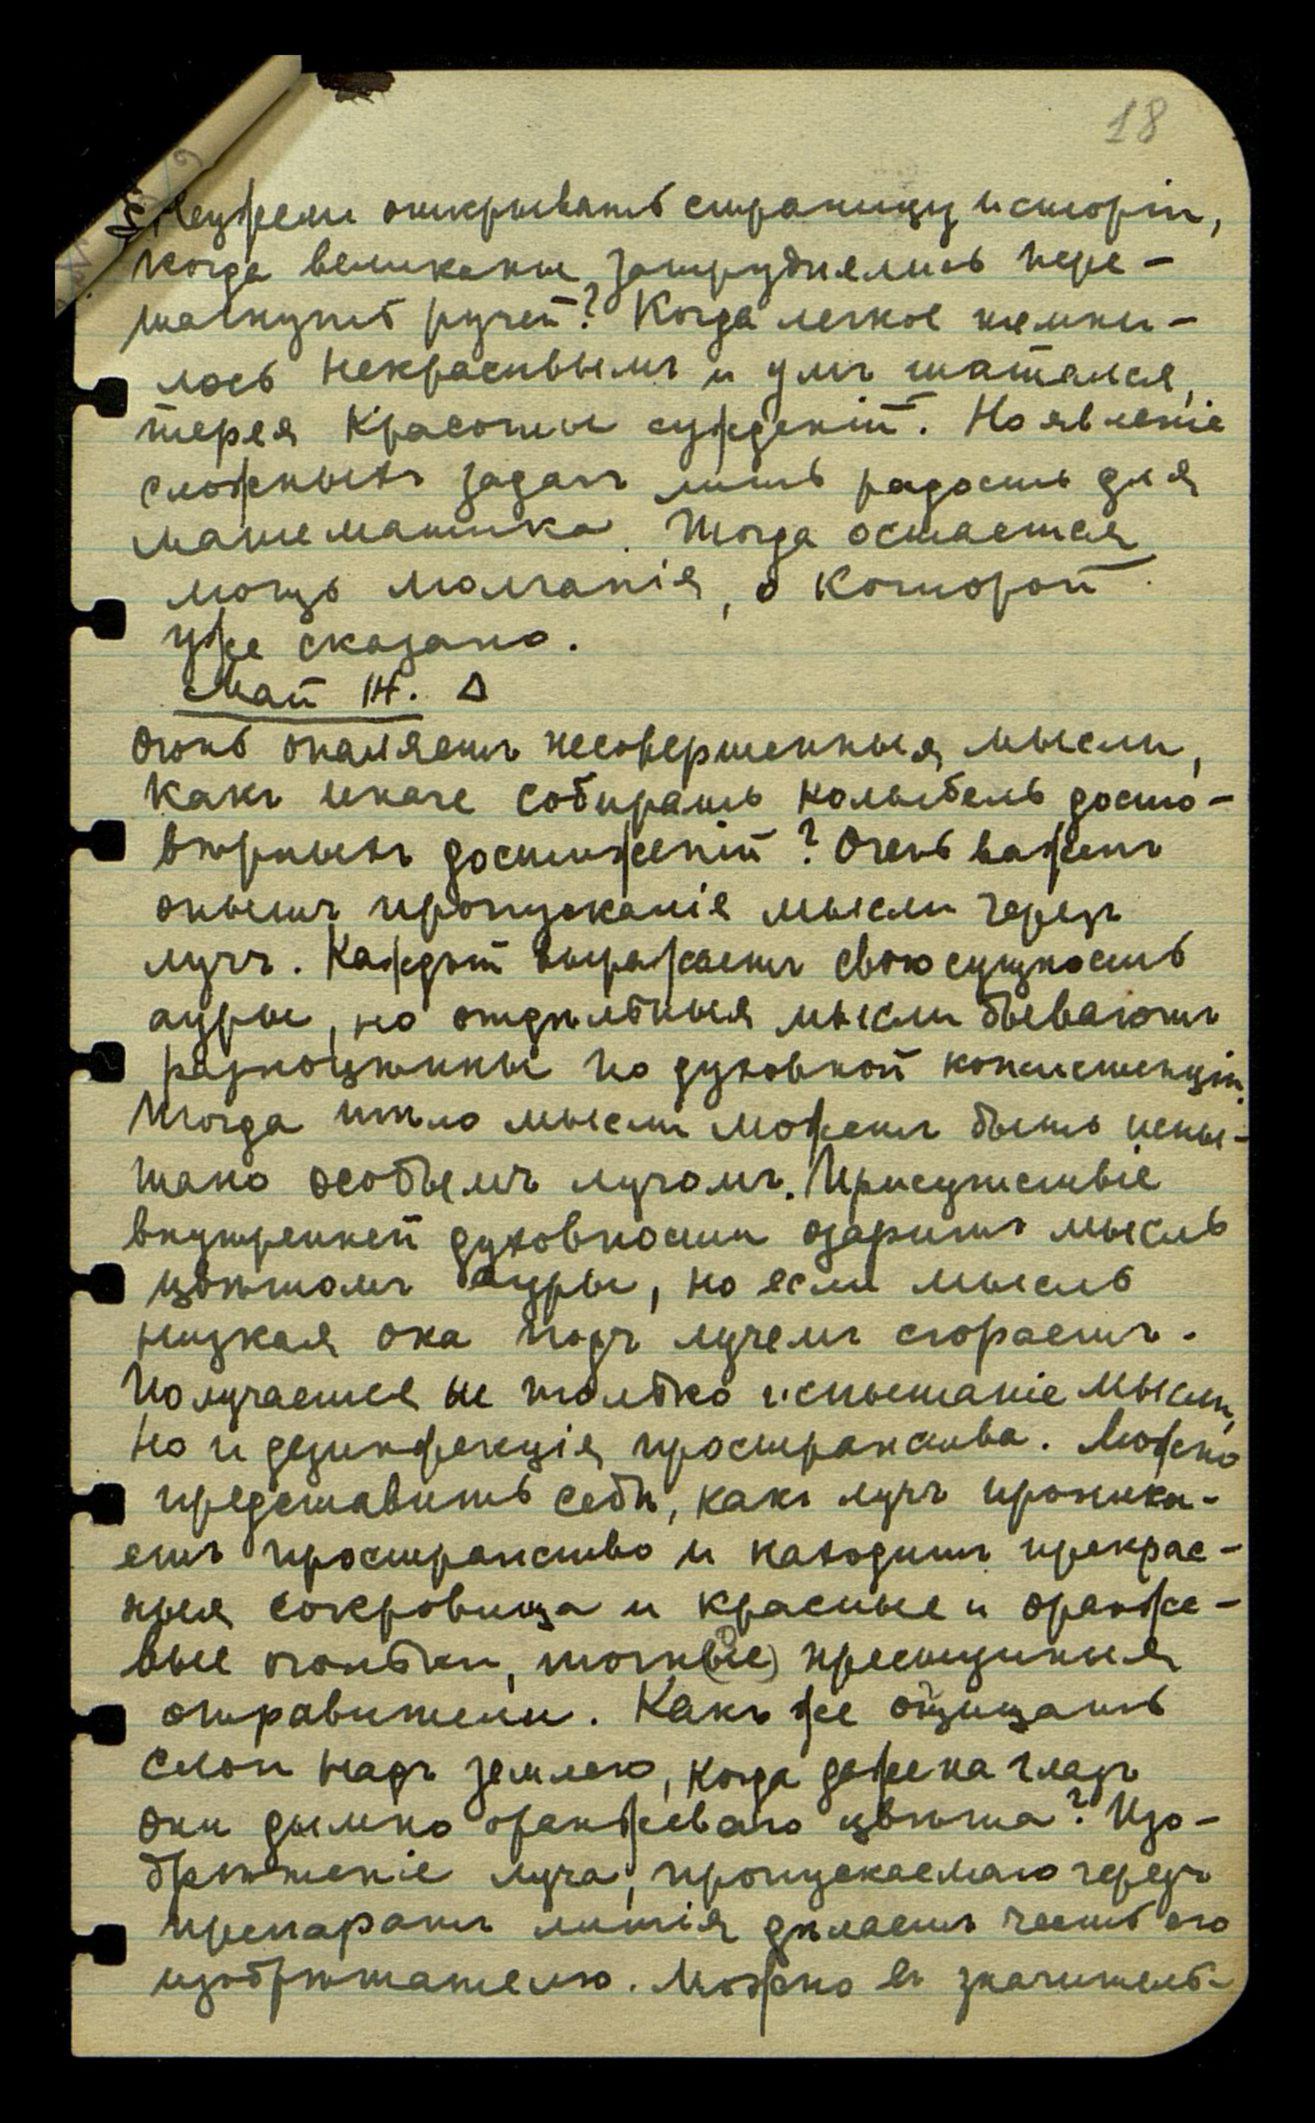 18
Неужели открывать страницу исторiи,
когда великаны затруднялись пере-
шагнуть ручей? Когда легкое
лось некрасивымъ и умъ шатался,
теряя красоты сужденiй. Но явленiе
сложныхъ задачъ лишь радость для
математика. Тогда остается
мощь молчанiя, о которой
уже сказано.
Май 14. Δ
Огонь опаляетъ несовершенныя мысли,
какъ иначе собирать колыбель досто-
вѣрныхъ достиженiй? Очень важенъ
опытъ пропусканiя мысли черезъ
лучъ. Каждый выражаетъ свою сущность
ауры, но отдѣльныя мысли бываютъ
разноцѣнны по духовной консистенцiи.
Тогда тѣло мысли можетъ быть испы-
тано особымъ лучомъ. Присутствiе
внутренней духовности озаритъ мысль
цвѣтомъ ауры, но если мысль
низкая она подъ лучемъ сгораетъ.
Получается не только испытанiе мысли,
но и дезинфекцiя пространства. Можно
представить себѣ, какъ лучъ проника-
етъ пространство и находитъ прекрас-
ныя сокровища и красные и оранже-
вые огоньки, точн(ые)
отравители. Какъ же очищать
слои надъ землею, когда даже на глазъ
они дымно оранжеваго цвѣта? Изо-
брѣтенiе луча, пропускаемаго черезъ
препаратъ литiя дѣлаетъ честь его
изобрѣтателю. Можно въ значитель-